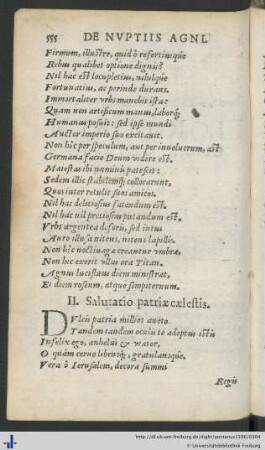 558 DE NVPTIIS AGNI.
Firmum, illustre, quid ò refertimque
Rebus qualibet optione dignis?
Nil hac est locupletius, nihilque
Fortunatius, ac perinde durans.
Immortaliter vrbs manebit ista:
Quam non artificum manus, laborque
Humanus posuit: sed ipse mundi
Auctor imperio suo excitauit.
Non hic per speculum, aut per inuolucrum, ast
Germana facie Deum videre est.
Maiestas ibi numinis patescit:
Sedem illic stabilemque collocarunt,
Quos inter retulit suos amicos.
Nil hac delitiosius fatendum est.
Nil hac nil pretiosius putandum est.
Vrbs argentea deforis, sed intus
Auro illusa nitens, nitens lapillis.
Non hic noctiuagæ creantur vmbræ.
Non hec exerit vllus ora Titan.
Agnus lucifluus diem ministrat,
Et diem roseum, atque sempiternum.
II. Salutatio patriæ cælestis.
DVlcis patria millies aueto.
Tandem tandem oculis te adeptus istis
Infelix ego, anhelus & viator,
O quàm cerno libensque, gratulansque.
Vera ô Ierosalem, decora summi
Regis
http://dl.ub.uni-freiburg.de/diglit/pontanus1596/0594
© Universitätsbibliothek Freiburg